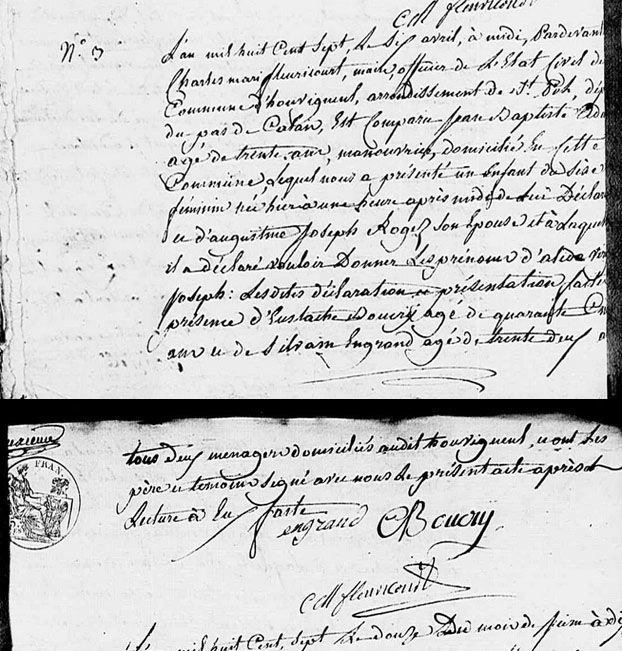 CM fleuricourt
N.° 3
L'an mil huit Cent sept, Le Six avril, à midi, Pardevant
Charles mari fleuricourt, maire officier de L'Etat Civil de
Commune d'houvigneul, arrondissement de St. Pol, dép
du pas de Calais, Est Comparu Jean Baptiste
agé de trente ans, manouvrier, domicilié En Cette
Commune, Lequel nous a présenté un Enfant du Sexe
féminin née hier à une heure après midi de Lui Déclar
et d'augustine Joseph Rogez Son Epouse et à Laquel
il a déclaré vouloir Donner Les prénoms d'
Joseph : Lesdites déclaration et présentation faites
présence d'Eustache Boucry agé de quarante Cin
ans et de Silvain Engrand agé de trente deux a
FRAN
tous deux menagers domiciliés audit houvigneul, et ont Les
père et temoins signé avec nous Le présent acte après
Lecture à Eux faite
engrand Boucry
CM fleuricourt
L'an mil huit Cent, Sept Le douze Du mois de juin à